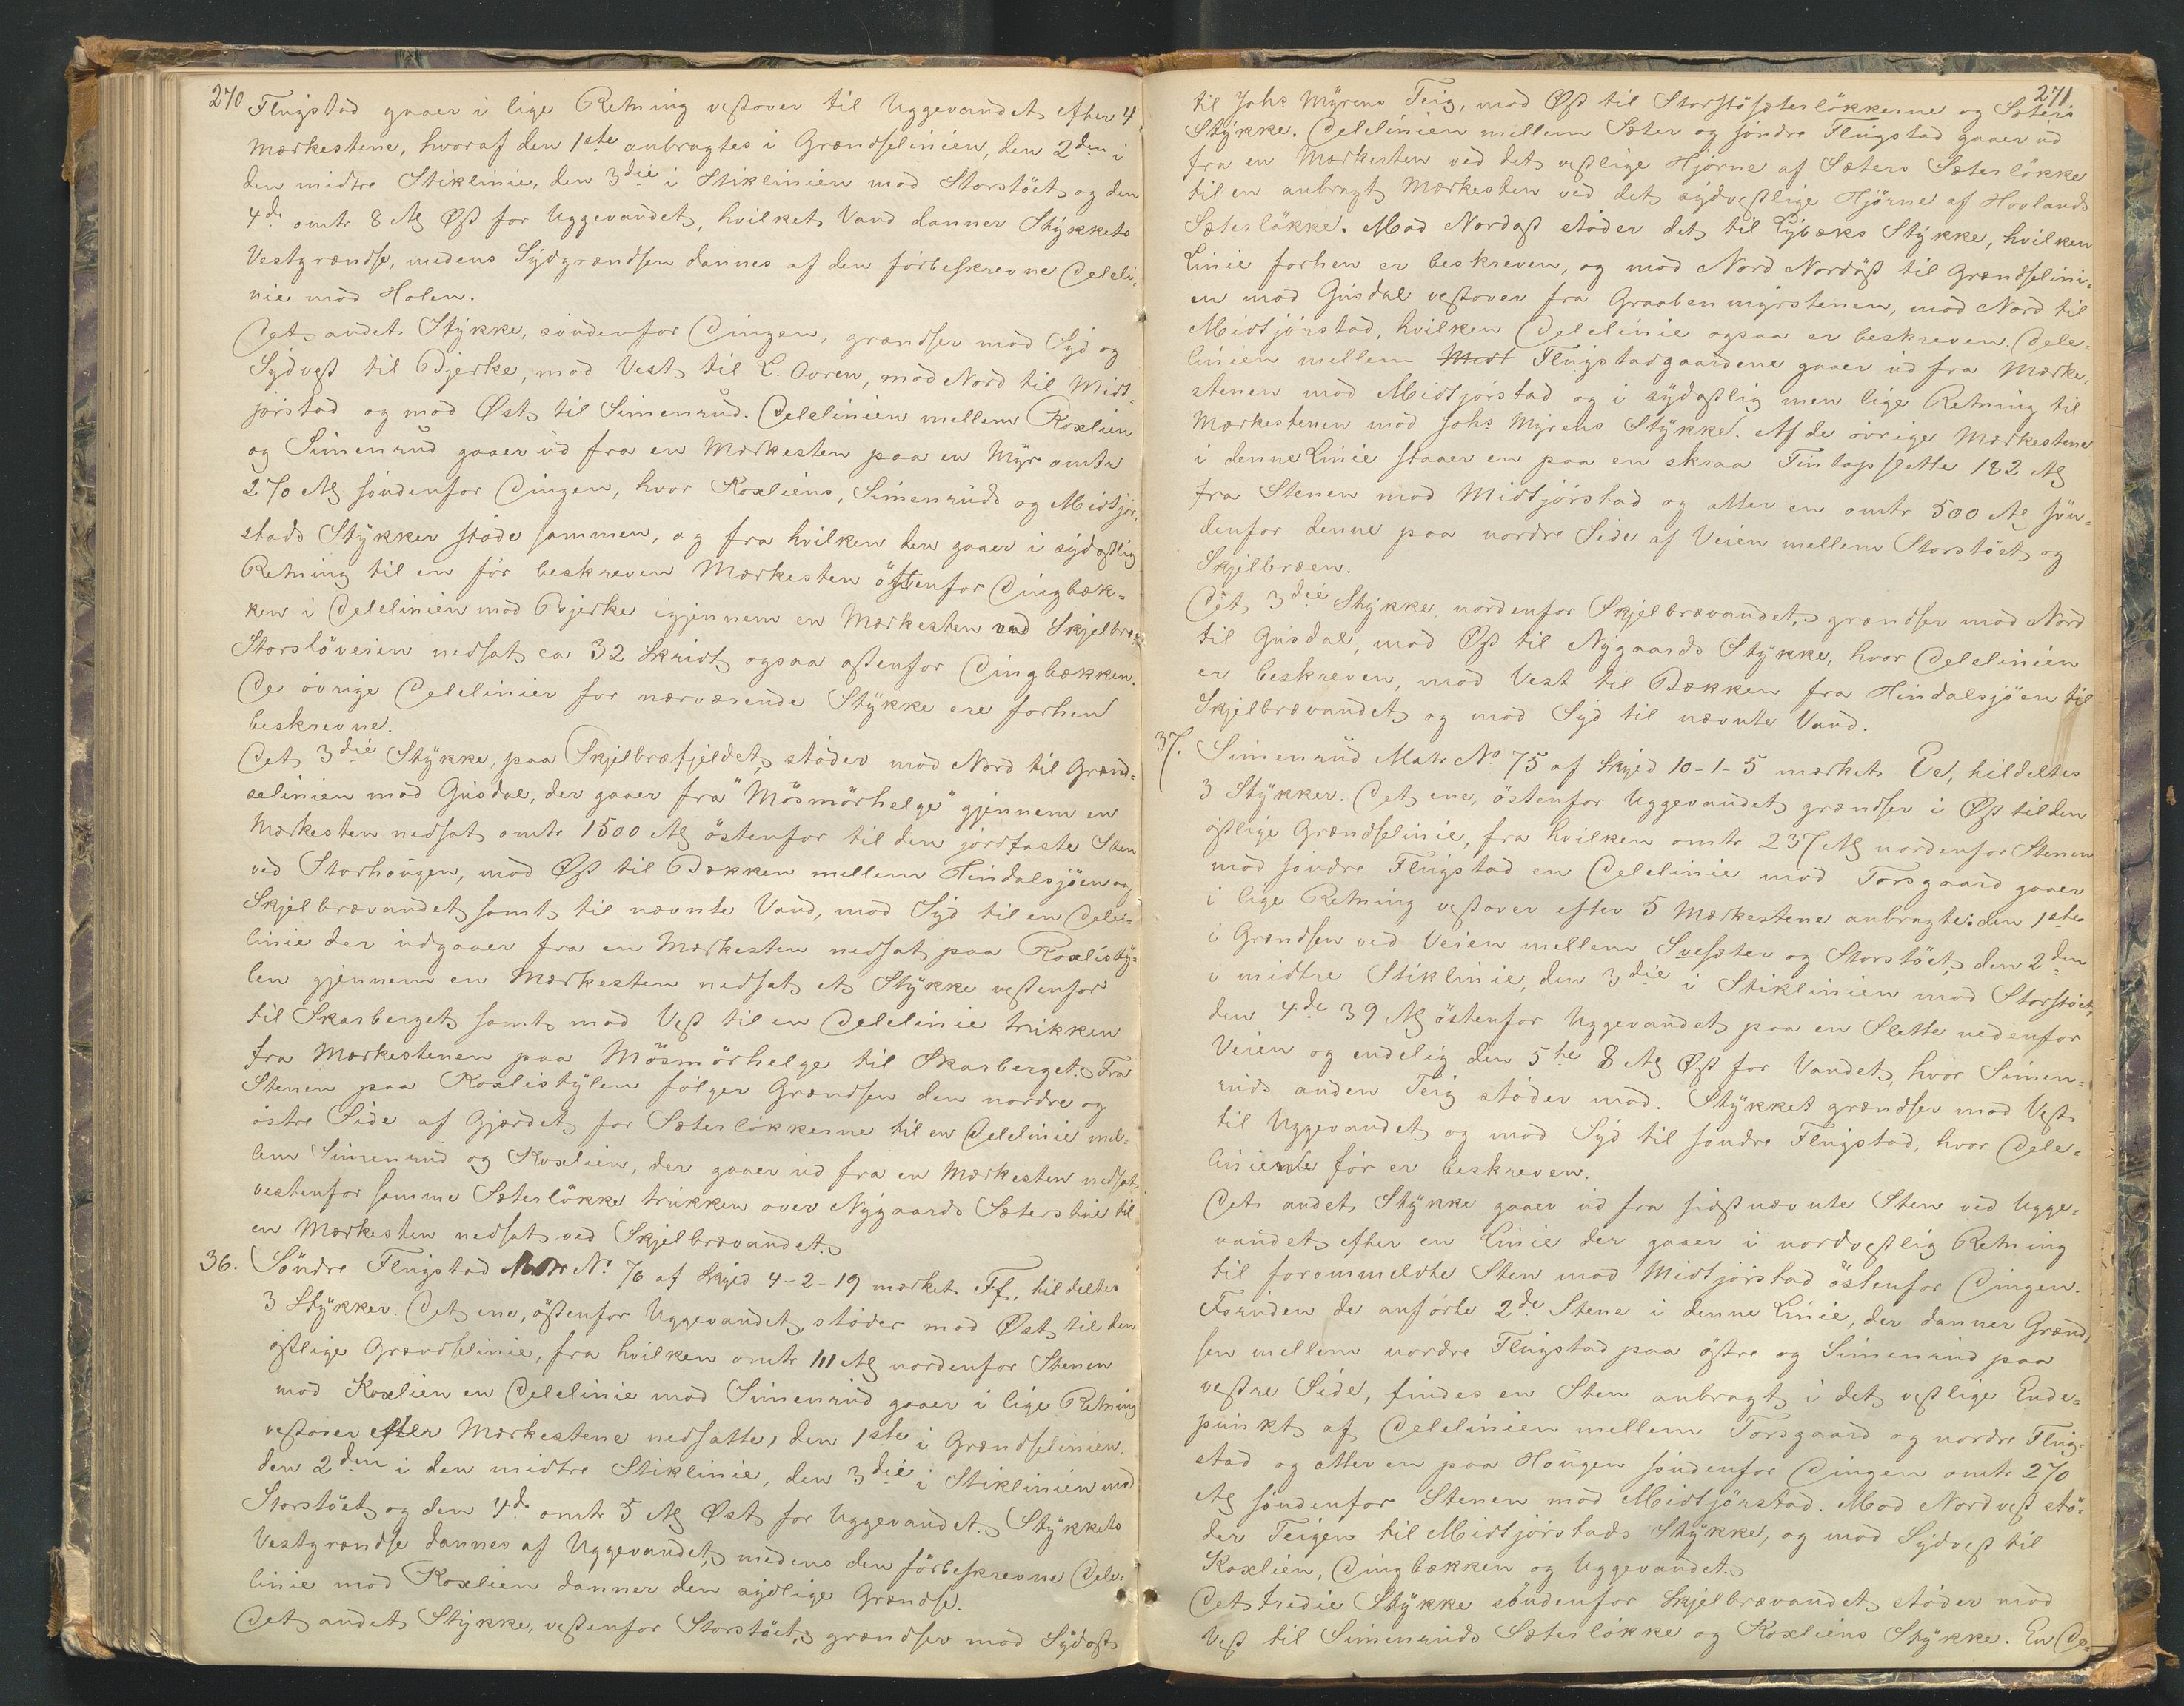 270
Flugstad gaaer i lige Retning vestover til Uggevandet efter 4
Mærkestene, hvoraf den 1ste anbragtes i Grændselinien, den 2den i
den midtre Stiklinie, den 3die i Stiklinien mod Storstöet og den
4de omtr 8 Al Øst for Uggevandet, hvilket Vand danner Stykkets
Vestgrændse, medens Sydgrændsen dannes af den förbeskrevne Deleli-
nie mod Holen.
Det andet Stykke, söndenfor Dingen, grændser mod Syd og
Sydvest til Bjerke, mod Vest til L. Ovren, mod Nord til Midt-
jorstad og mod Øst til Simenrud. Delelinien mellem Koxlien
og Simenrud gaaer ud fra en Mærkesten paa en Myr omtr
270 Al söndenfor Dingen, hvor Koxliens, Simenruds og Midtjor-
stads Stykker stöde sammen, og fra hvilken den gaaer i sydostlig
Retning til en för beskreven Mærkesten östenfor Dingbæk-
ken i Delelinien mod Bjerke igjennem en Mærkesten ved Skjelbræ-
Storstöveien nedsat ca 32 Skridt ogsaa ostenfor Dingbækken.
De övrige Delelinier for nærværende Stykke ere forhen
beskrevne.
Det 3die Stykke, paa Skjelbræfjeldet, stöder mod Nord til Grænd-
selinien mod Gusdal, der gaaer fra "Mösmörhelge" gjennem en
Mærkesten nedsat omtr 1500 Al östenfor til den jordfaste Sten
ved Storhougen, mod Øst til Bækken mellem Hindalsjöen og
Skjelbrævandet samt til nævnte Vand, mod Syd til en Dele-
linie der udgaaer fra en Mærkesten nedsat paa Koxlisty-
len gjennem en Mærkesten nedsat et Stykke vestenfor
til Skarberget samt mod Vest til en Delelinie trukken
fra Mærkestenen paa Mösmörhelge til Skarberget. Fra
Stenen paa Koxlistylen fölger Grændsen den nordre og
östre Side af Gjærdet for Sæterlökkerne til en Delelinie mel-
lem Simenrud og Koxlien, der gaaer ud fra en Mærkesten nedsat
vestenfor samme Sæterlökke trukken over Nygaards Sæterstue til
en Mærkesten nedsat ved Skjelbrævandet.
36. Söndre Flugstad Matr No. 76 af Skyld 4-2-19 mærket Ff, tildeltes
3 Stykker. Det ene, östenfor Uggevandet, stöder mod Øst til den
östlige Grændselinie, fra hvilken omtr 111 Al nordenfor Stenen
mod Koxlien en Delelinie mod Simenrud gaaer i lige Retning
vestover efter Mærkestene nedsatte, den 1ste i Grændselinien,
den 2den i den midtre Stiklinie, den 3die i Stiklinien mod
Storstöet og den 4de omtr 5 Al Øst for Uggevandet. Stykkets
Vestgrændse dannes af Uggevandet, medens den förbeskrevne Dele-
linie mod Koxlien danner den sydlige Grændse.
Det andet Stykke, vestenfor Storstöet, grændser mod Sydost
271
til Johs Myrens Teig, mod Øst til Storstösæterlökkerne og Sæters
Stykke. Delelinien mellem Sæter og söndre Flugstad gaaer ud
fra en Mærkesten ved det vestlige Hjörne af Sæters Sæterlökke
til en anbragt Mærkesten ved det sydvestlige Hjörne af Hovlands
Sæterlökke. Mod Nordost stöder det til Lybæks Stykke, hvilken
Linie forhen er beskreven, og mod Nord Nordöst til Grændselini-
en mod Gusdal vestover fra Graabenmyrstenen, mod Nord til
Midtjorstad, hvilken Delelinie ogsaa er beskreven. Dele-
linien mellem Flugstadgaardene gaaer ud fra Mærke-
stenen mod Midtjorstad og i sydostlig men lige Retning til
Mærkestenen mod Johs Myrens Stykke. Af de övrige Mærkestene
i denne Linie staaer en paa en skraa Fintopslette 182 Al
fra Stenen mod Midtjorstad og atter en omtr 500 Al sön-
denfor denne paa nordre Side af Veien mellem Storstöet og
Skjelbræen.
Det 3die Stykke, nordenfor Skjelbrævandet, grændser mod Nord
til Gusdal, mod Øst til Nygaards Stykke, hvor Delelinien
er beskreven, mod Vest til Bækken fra Hindalsjöen til
Skjelbrævandet og mod Syd til nævnte Vand.
37. Simenrud Matr No. 75 af Skyld 10-1-5 mærket Ee, tildeltes
3 Stykker. Det ene, östenfor Uggevandet grændser i Øst til den
östlige Grændselinie, fra hvilken omtr 237 Al nordenfor Stenen
mod söndre Flugstad en Delelinie mod Torsgaard gaaer
i lige Retning vestover efter 5 Mærkestene anbragte: den 1ste
i Grændsen ved Veien mellem Svesæter og Storstöet, den 2den
i midtre Stiklinie, den 3die i Stiklinien mod Storstöet,
den 4de 39 Al östenfor Uggevandet paa en Slette nedenfor
Veien og endelig den 5te 8 Al Øst for Vandet, hvor Simen-
ruds anden Teig stöder mod. Stykket grændser mod Vest
til Uggevandet og mod Syd til söndre Flugstad, hvor Dele-
linierne för er beskreven.
Det andet Stykke gaaer ud fra sidstnævnte Sten ved Ugge-
vandet efter en Linie der gaaer i nordvestlig Retning
til forommeldte Sten mod Midtjorstad östenfor Dingen.
Foruden de anförte 2de Stene i denne Linie, der danner Grænd-
sen mellem nordre Flugstad paa östre og Simenrud paa
vestre Side, findes en Sten anbragt i det vestlige Ende-
punkt af Delelinien mellem Torsgaard og nordre Flug-
stad og atter en paa Hougen söndenfor Dingen omtr 270
Al söndenfor Stenen mod Midtjörstad. Mod Nordvest stö-
der Teigen til Midtjorstads Stykke, og mod Sydvest til
Koxlien, Dingbækken og Uggevandet.
Det tredie Stykke söndenfor Skjelbrævandet stöder mod
Vest til Simenruds Sæterlökke og Koxliens Stykke. En De-